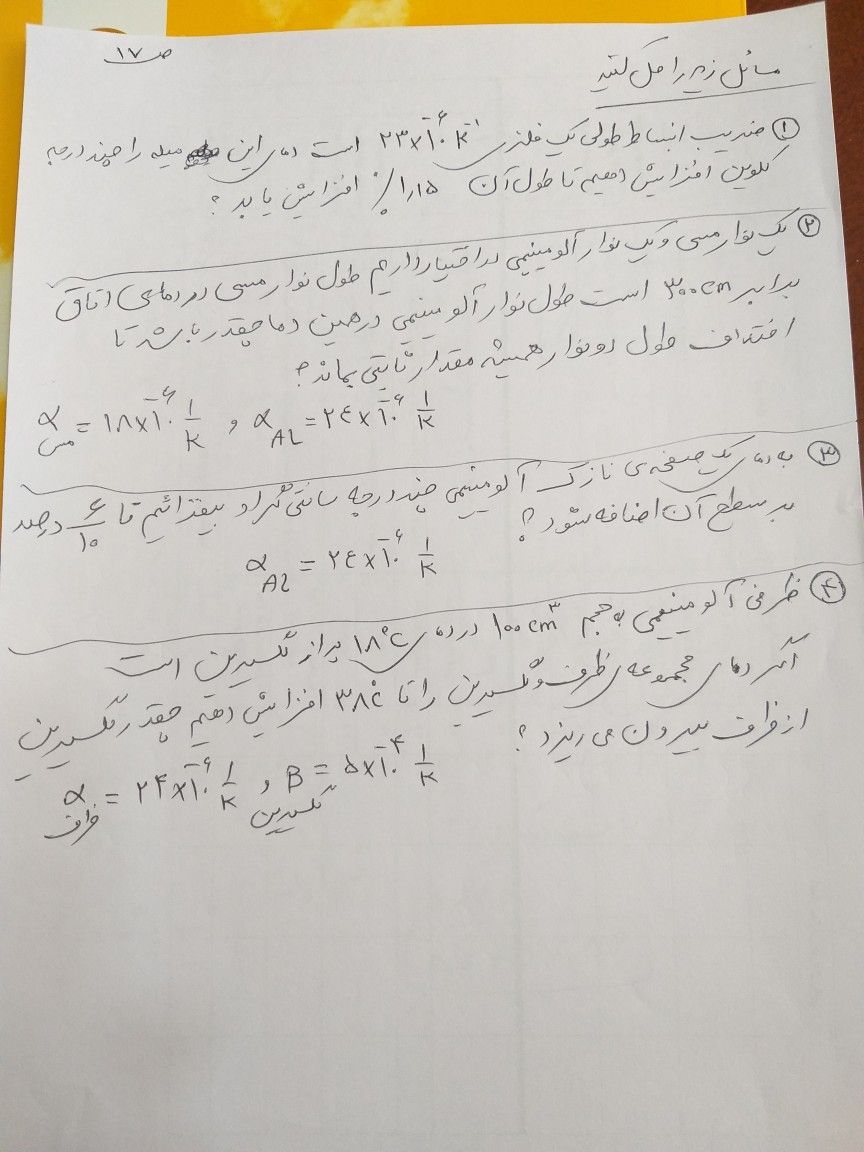 ص ۱۷
مسائل زیر را حل کنید
① ضریب انبساط طولی یک فلزی ۲۳×۱۰⁻⁶ K⁻¹ است دمای این میله را چند درجه
کلوین افزایش دهیم تا طول آن ۰٫۱۵٪ افزایش یابد ؟
② یک نوار مسی و یک نوار آلومینیمی در اختیار داریم طول نوار مسی در دمای اتاق
برابر ۳۰۰cm است طول نوار آلومینیمی در همین دما چقدر باشد تا
اختلاف طول دو نوار همیشه مقدار ثابتی بماند ؟
α مس = ۱۸×۱۰⁻⁶ 1/K و α AL = ۲٤×۱۰⁻⁶ 1/K
③ به دمای یک صفحه ی نازک آلومینیمی چند درجه سانتی گراد بیفزائیم تا ۶/۱۰ درصد
بر سطح آن اضافه شود ؟
α Al = ۲٤×۱۰⁻⁶ 1/K
④ ظرفی آلومینیمی به حجم ۱۰۰cm³ در دمای ۱۸°C پر از گلیسیرین است
اگر دمای مجموعه ی ظرف و گلیسیرین را تا ۳۸°C افزایش دهیم چقدر گلیسیرین
از ظرف بیرون می ریزد ؟
α ظرف = ۲۴×۱۰⁻⁶ 1/K و B گلیسیرین = ۵×۱۰⁻⁴ 1/K